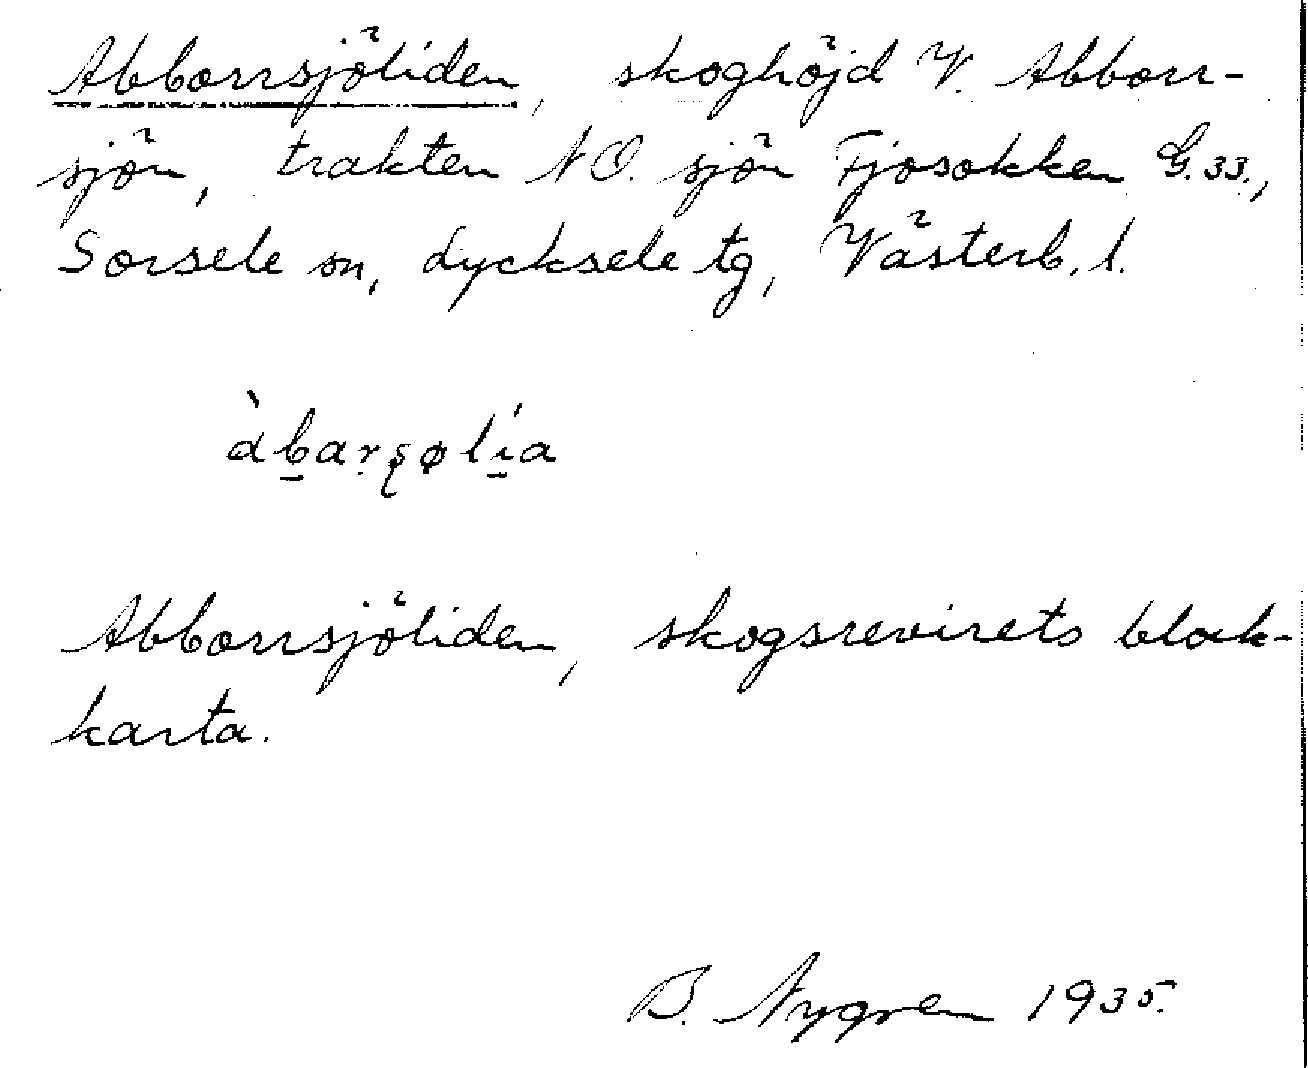 Abborrsjöliden, skoghöjd V. Abborr-
sjön, trakten NO. sjön Fjosokken G. 33.,
Sorsele sn, Lycksele tg, Västerb. l.
àbarşølı́a
Abborrsjöliden, skogsrevirets block-
karta.
B. Nygren 1935.